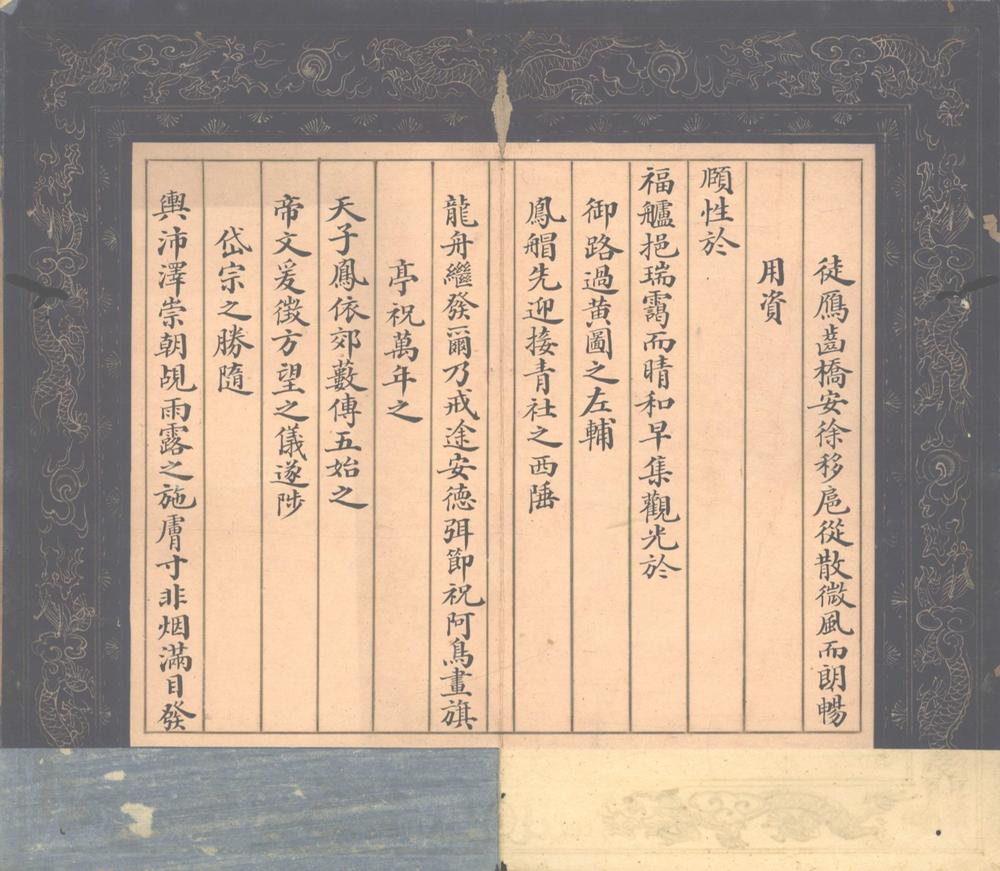 徒鴈齒橋安徐移扈從散微風而朗暢
用資
頤性於
福艫挹瑞靄而晴和早集觀光於
御路過黄圖之左輔
鳳艒先迎接青社之西陲
龍舟繼發爾乃戒途安德弭節祝阿鳥畫旗
亭祝萬年之
天子鳳依郊藪傳五始之
帝文爰徵方望之儀遂陟
岱宗之勝隨
輿沛澤崇朝覘雨露之施膚寸非烟滿目發